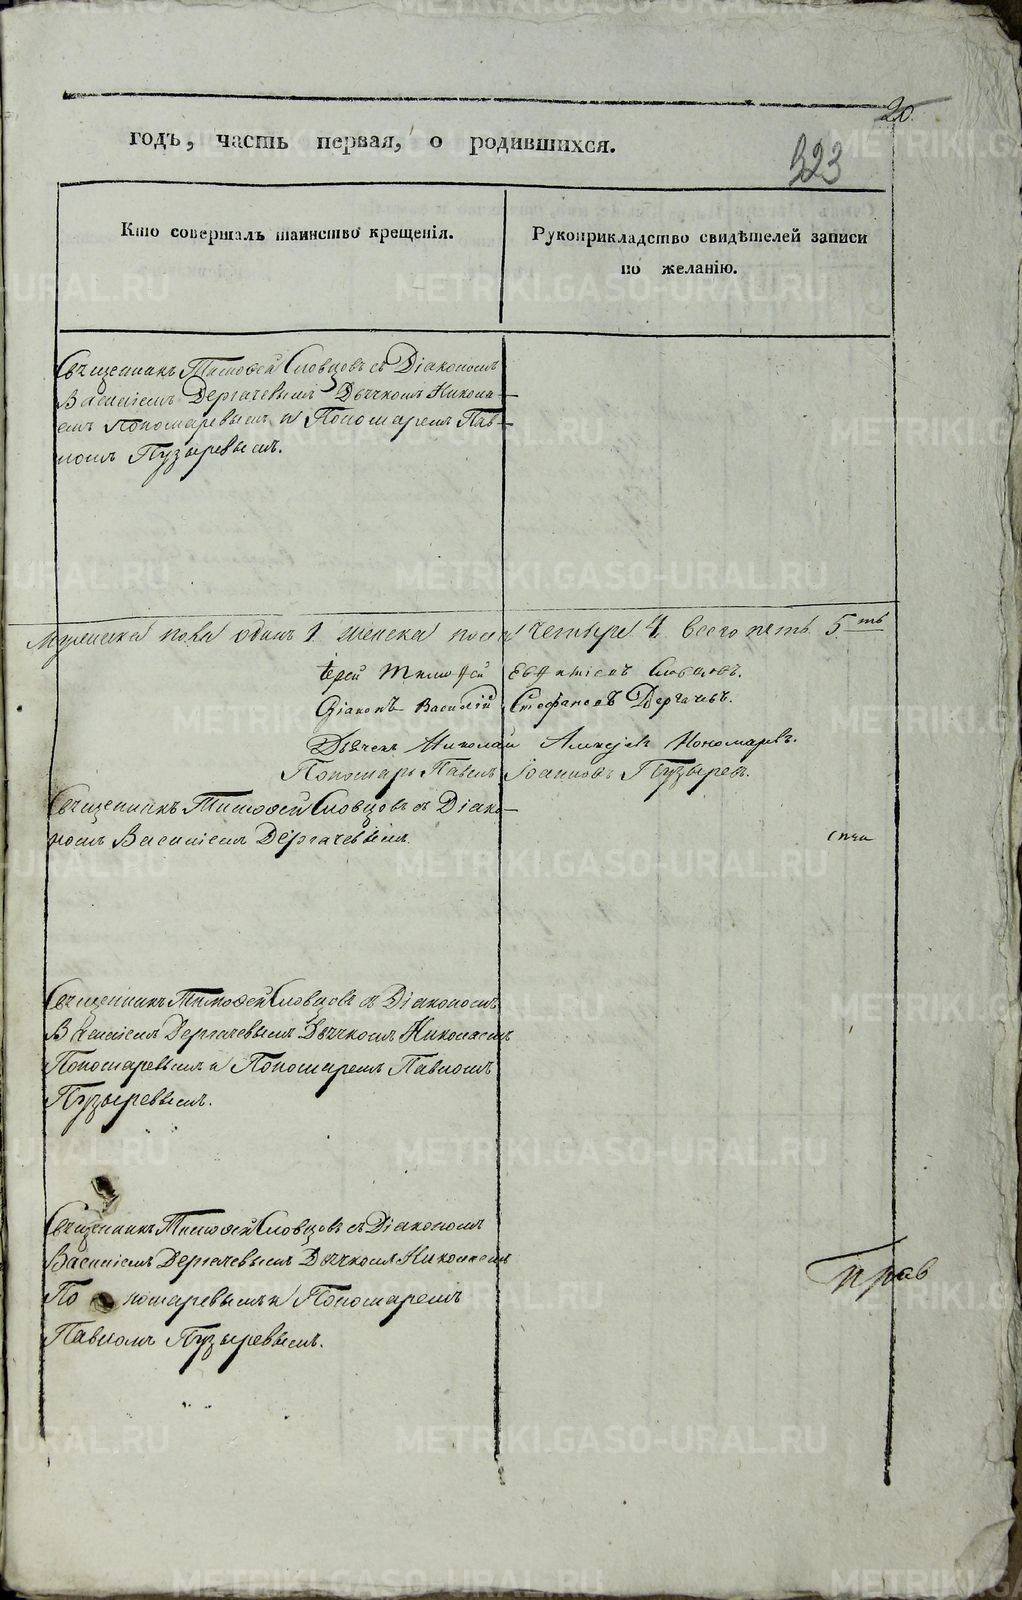 20.
годъ, часть первая, о родившихся.
323
Кто совершалъ таинство крещенія.
Рукоприкладство свидѣтелей записи
по желанію.
Священникъ Тимоѳей Словцовъ съ Діакономъ
Василіемъ Дергачевымъ Дьячкомъ Никола-
емъ Пономаревымъ и Пономаремъ Пав-
ломъ Пузыревымъ.
Мужеска пола одинъ 1 женска пола четыре 4 всего пять 5.ть
Іерей Тимоѳей Евѳиміевъ Словцовъ.
Діаконъ Василій Стефановъ Дергачевъ.
Дьячекъ Николай Алексѣевъ Пономаревъ.
Пономарь Павелъ Іоанновъ Пузыревъ.
Священникъ Тимоѳей Словцовъ съ Діако-
номъ Василіемъ Дергачевымъ.
Священникъ Тимоѳей Словцовъ съ Діакономъ
Василіемъ Дергачевымъ Дьячкомъ Николаемъ
Пономаревымъ и Пономаремъ Павломъ
Пузыревымъ.
Священникъ Тимоѳей Словцовъ съ Діакономъ
Василіемъ Дергачевымъ Дьячкомъ Николаемъ
Пономаревымъ и Пономаремъ
Павломъ Пузыревымъ.
Прав
METRIKI.GASO-URAL.RU